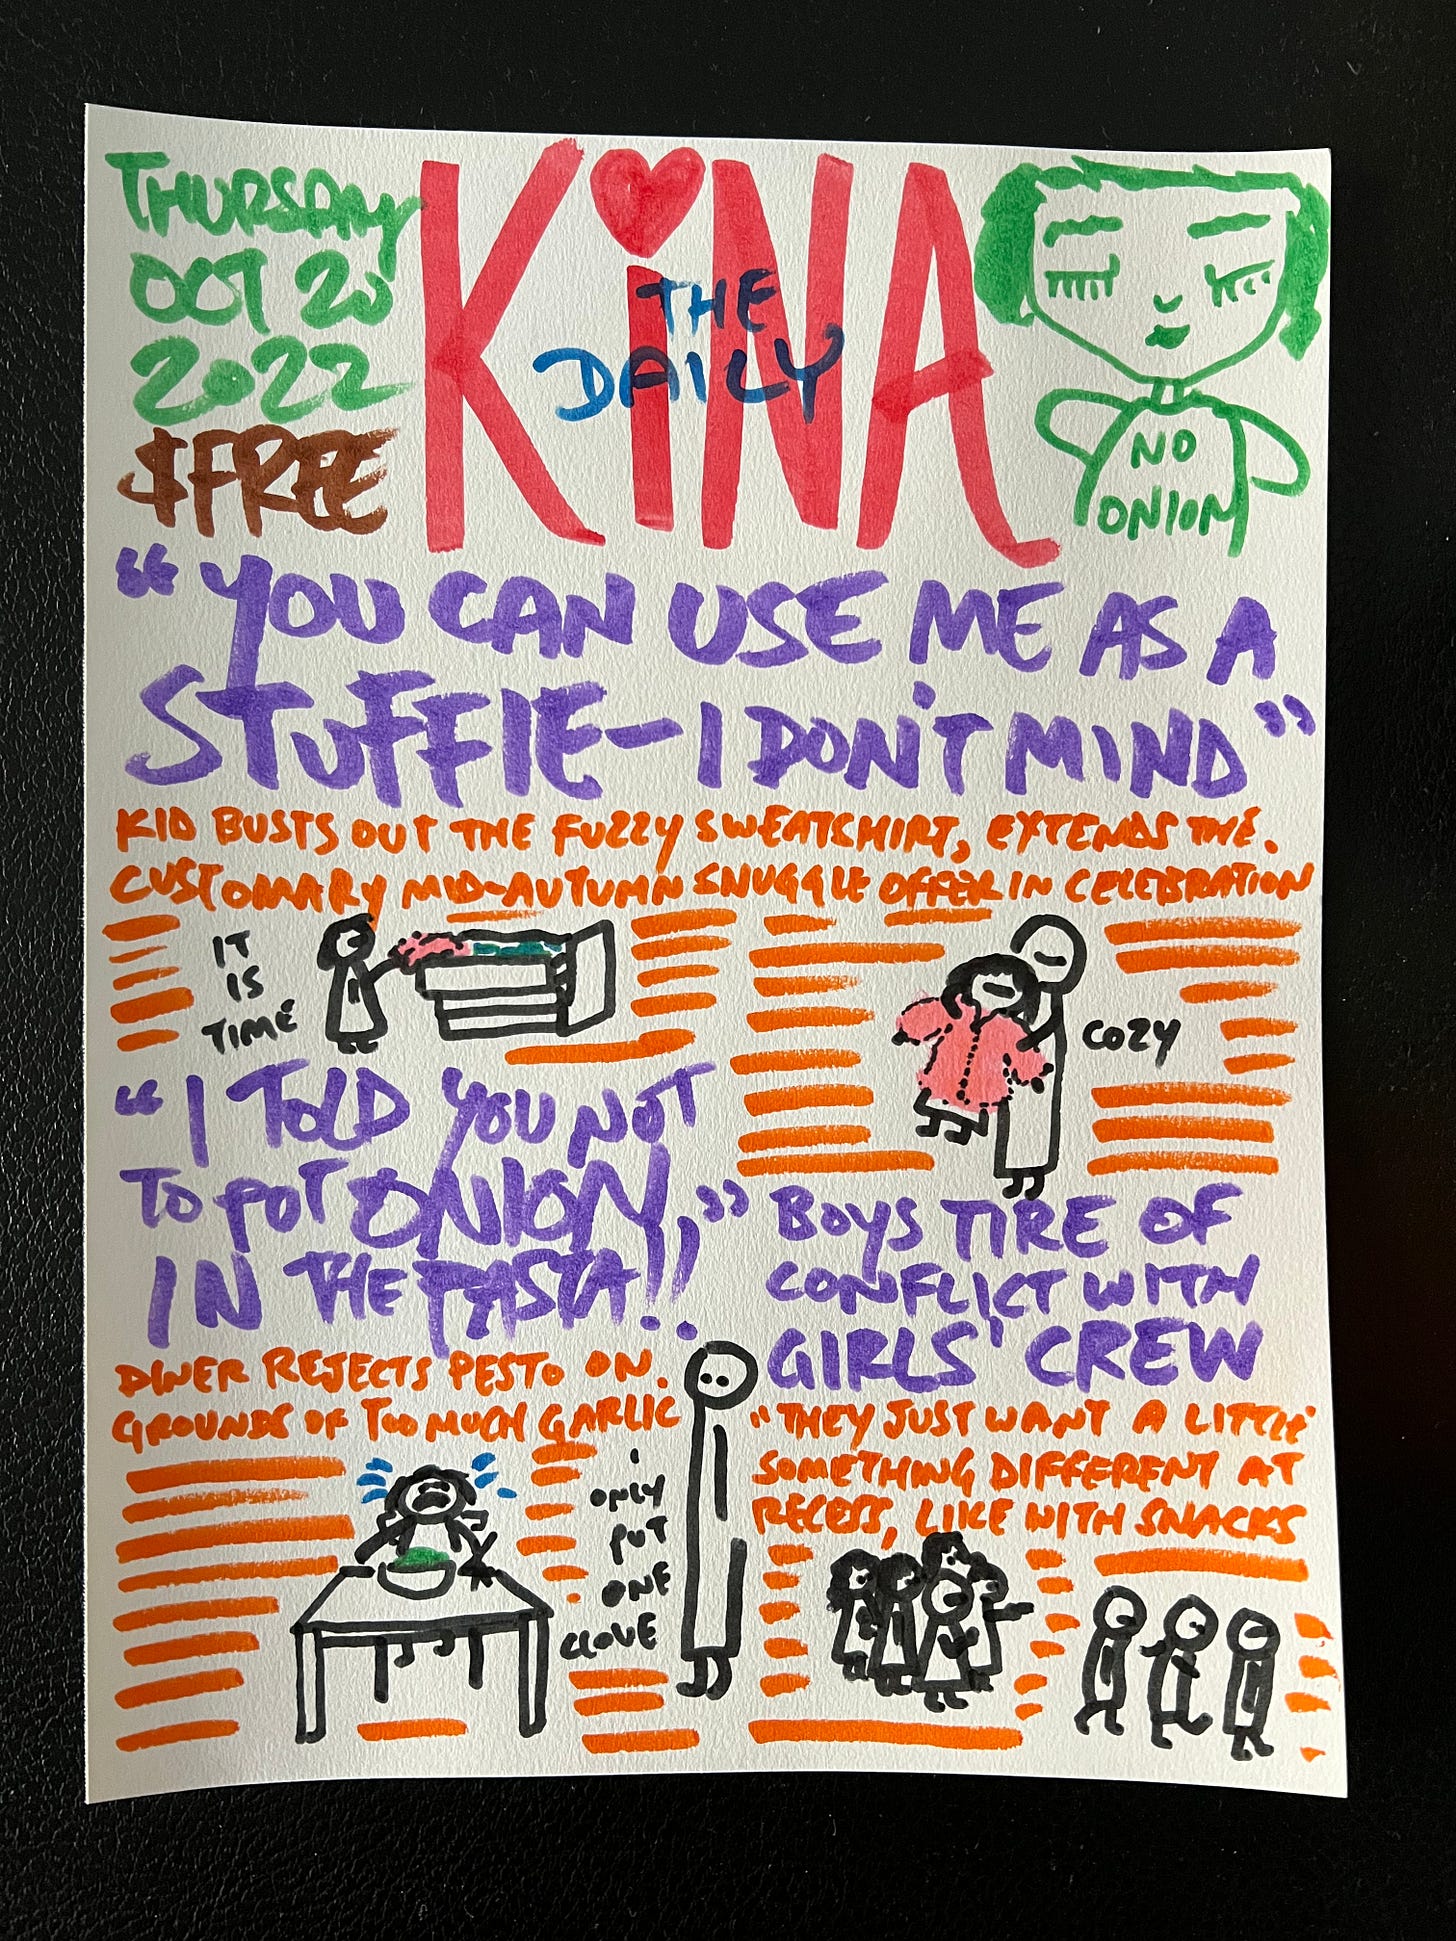 THURSDAY
OCT 20
2022
$FREE
THE
DAILY
KiNA
NO
ONION
"YOU CAN USE ME AS A
STUFFIE – I DON'T MIND"
KID BUSTS OUT THE FUZZY SWEATSHIRT, EXTENDS THE
CUSTOMARY MID-AUTUMN SNUGGLE OFFER IN CELEBRATION
IT
IS
TIME
COZY
"I TOLD YOU NOT
TO PUT ONION
IN THE PASTA!!"
DINER REJECTS PESTO ON
GROUNDS OF TOO MUCH GARLIC
I
ONLY
PUT
ONE
CLOVE
BOYS TIRE OF
CONFLICT WITH
GIRLS' CREW
"THEY JUST WANT A LITTLE
SOMETHING DIFFERENT AT
RECESS, LIKE WITH SNACKS